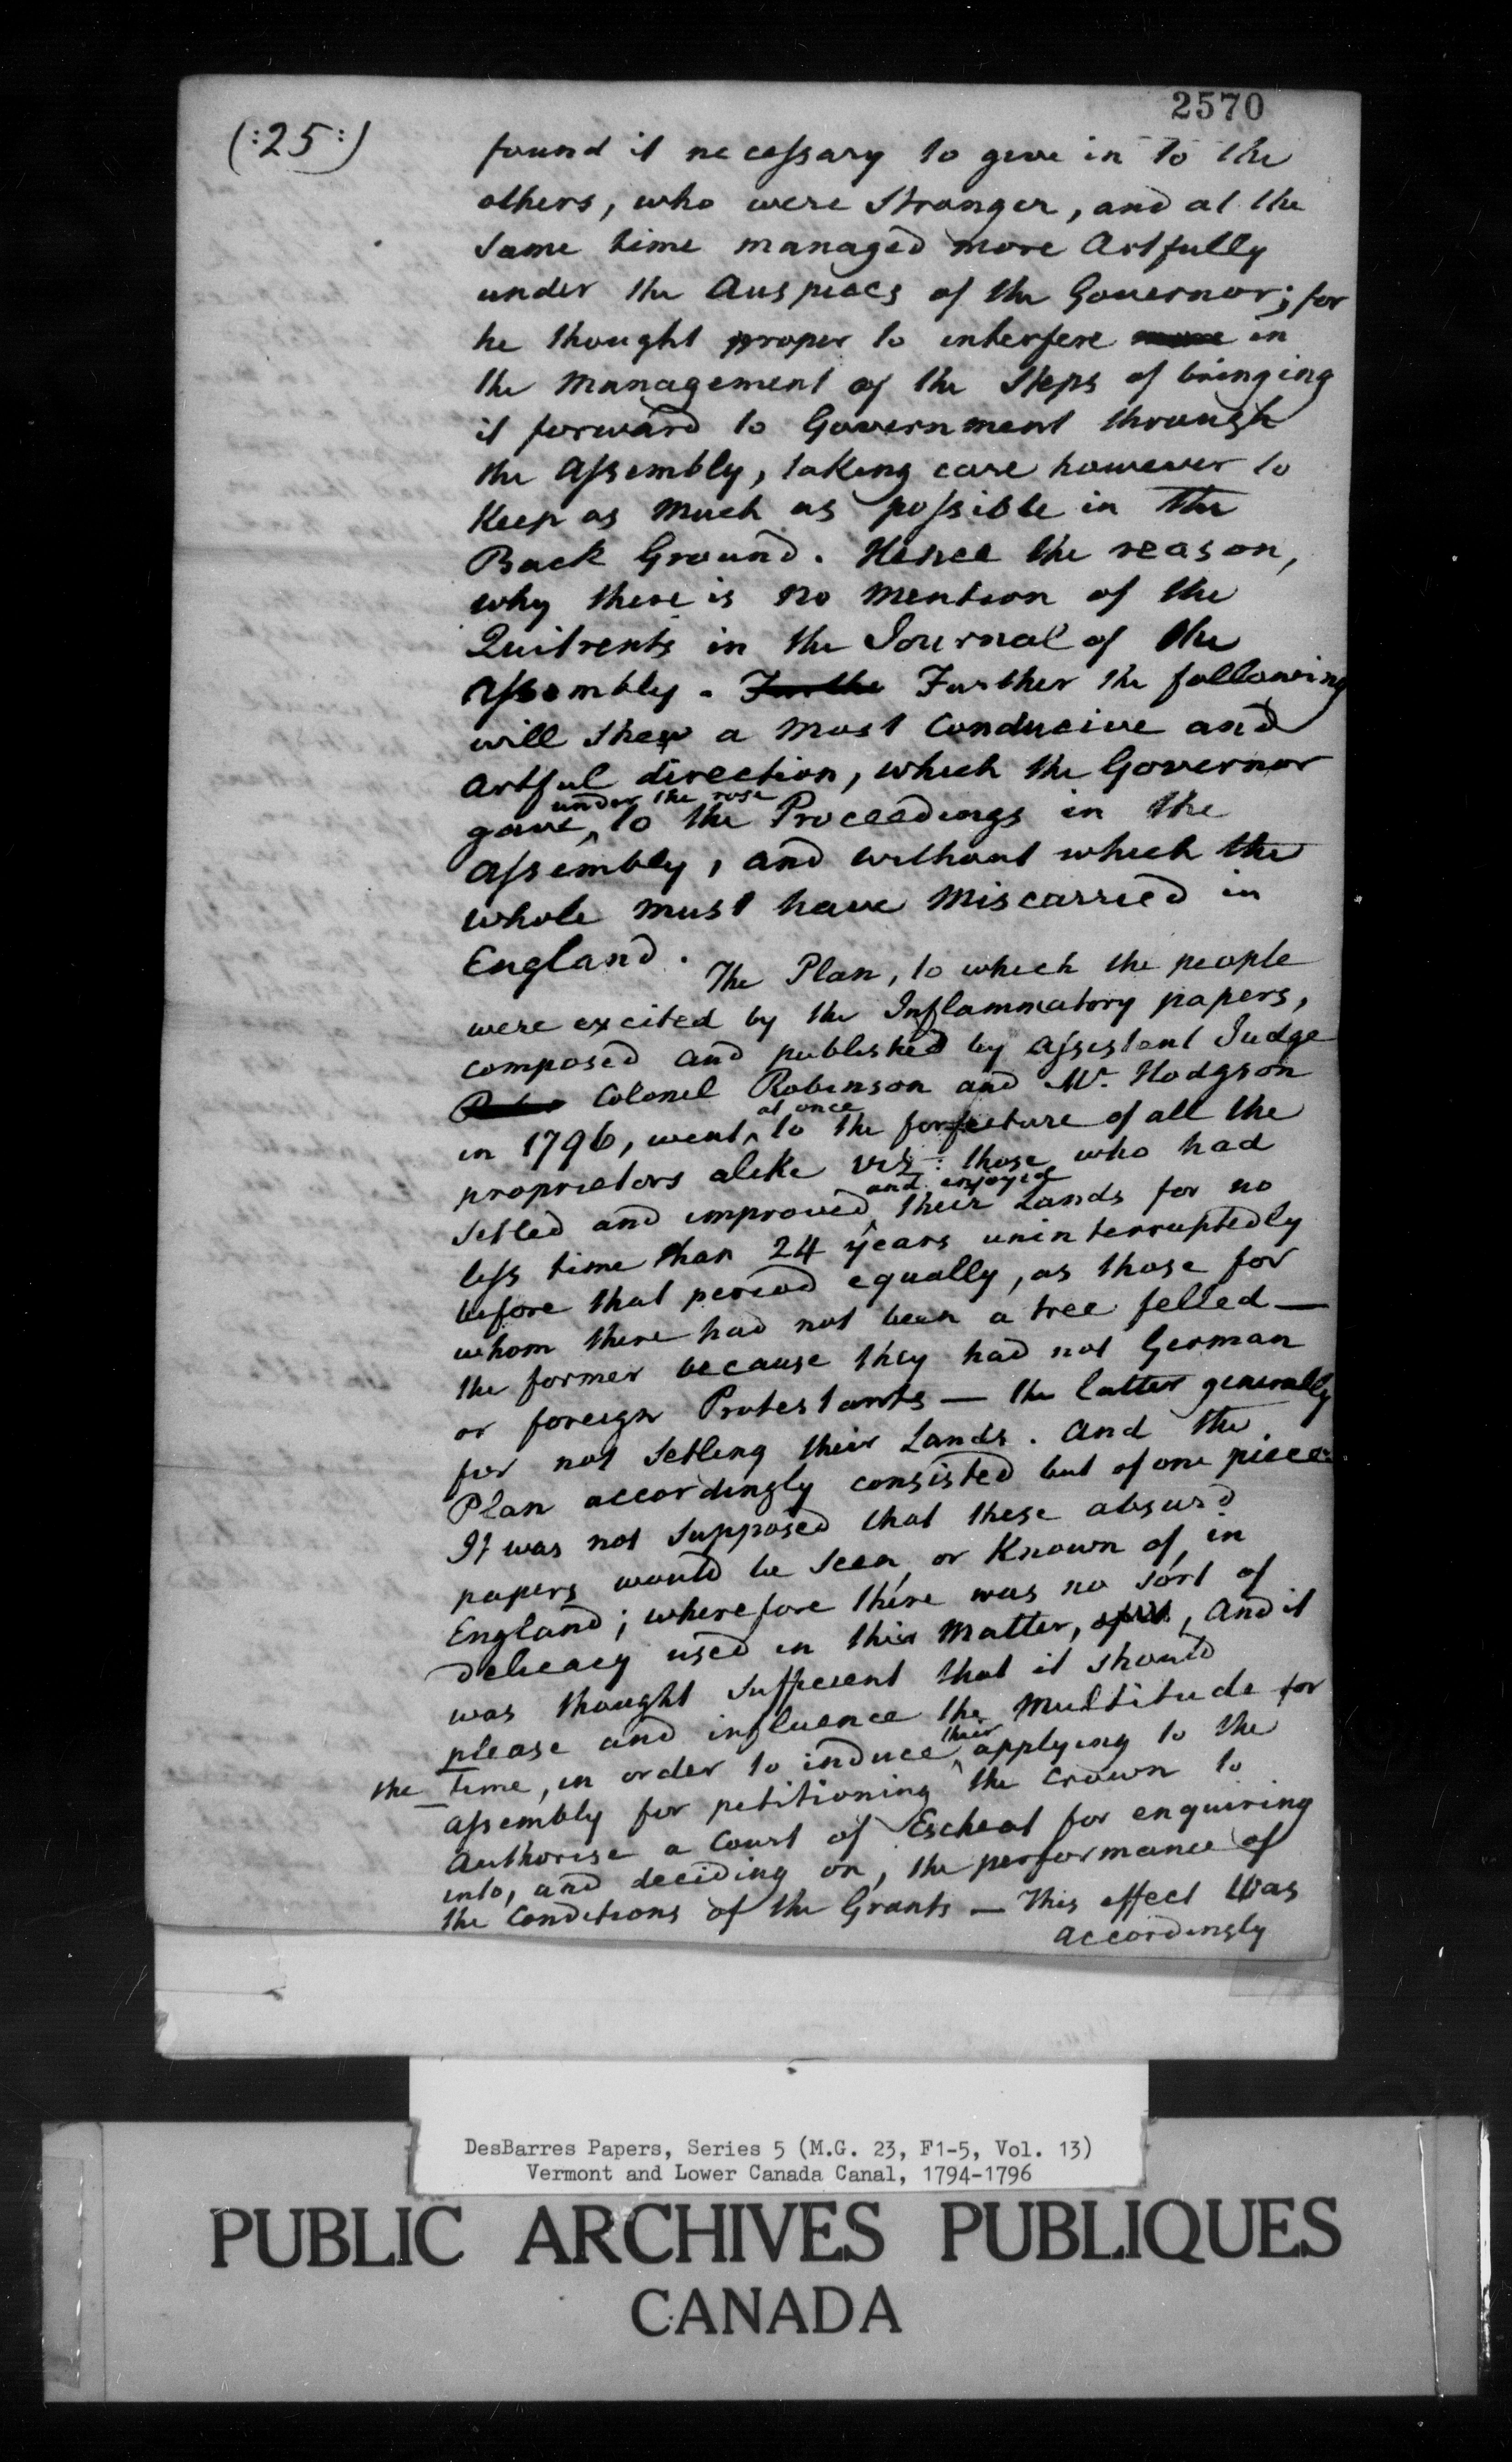 2570
(:25:)
found it necessary to give in to the
others, who were Stronger, and at the
same time managed more Artfully
under the Auspices of the Governor; for
he thought proper to interfere in
the Management of the Steps of bringing
it forward to Government through
the Assembly, taking care however to
Keep as much as possible in the
Back Ground. Hence the reason,
why there is no mention of the
Quitrents in the Journal of the
Assembly. Furthe Further the following
will shew a most Conducive and
artful direction, which the Governor
gave, under the rose to the Proceedings in the
Assembly, and without which the
whole must have Miscarried in
England.
The Plan, to which the people
were excited by the Inflammatory papers,
composed and published by Assistant Judge
Colonel Robinson and Mr. Hodgson
in 1796, went at once to the forfeiture of all the
proprietors alike viz: those who had
Setled and improved and enjoyed their Lands for no
less time than 24 years uninterruptedly
before that period equally, as those for
whom there had not been a tree felled—
the former because they had not German
or foreign Protestants — the latter generally
for not Setling their Lands. And the
Plan accordingly consisted but of one piece
It was not Supposed that these absurd
papers would be seen, or Known of, in
England; wherefore there was no sort of
delicacy used in this Matter, and it
was thought Sufficent that it should
please and influence the Multitude for
the Time, in order to induce their applying to the
Assembly for petitioning the Crown to
Authorise a Court of Escheat for enquiring
into, and deciding on, the performance of
the Conditions of the Grants — This effect Was
accordingly
DesBarres Papers, Series 5 (M.G. 23, F1-5, Vol. 13)
Vermont and Lower Canada Canal, 1794-1796
PUBLIC ARCHIVES PUBLIQUES
CANADA